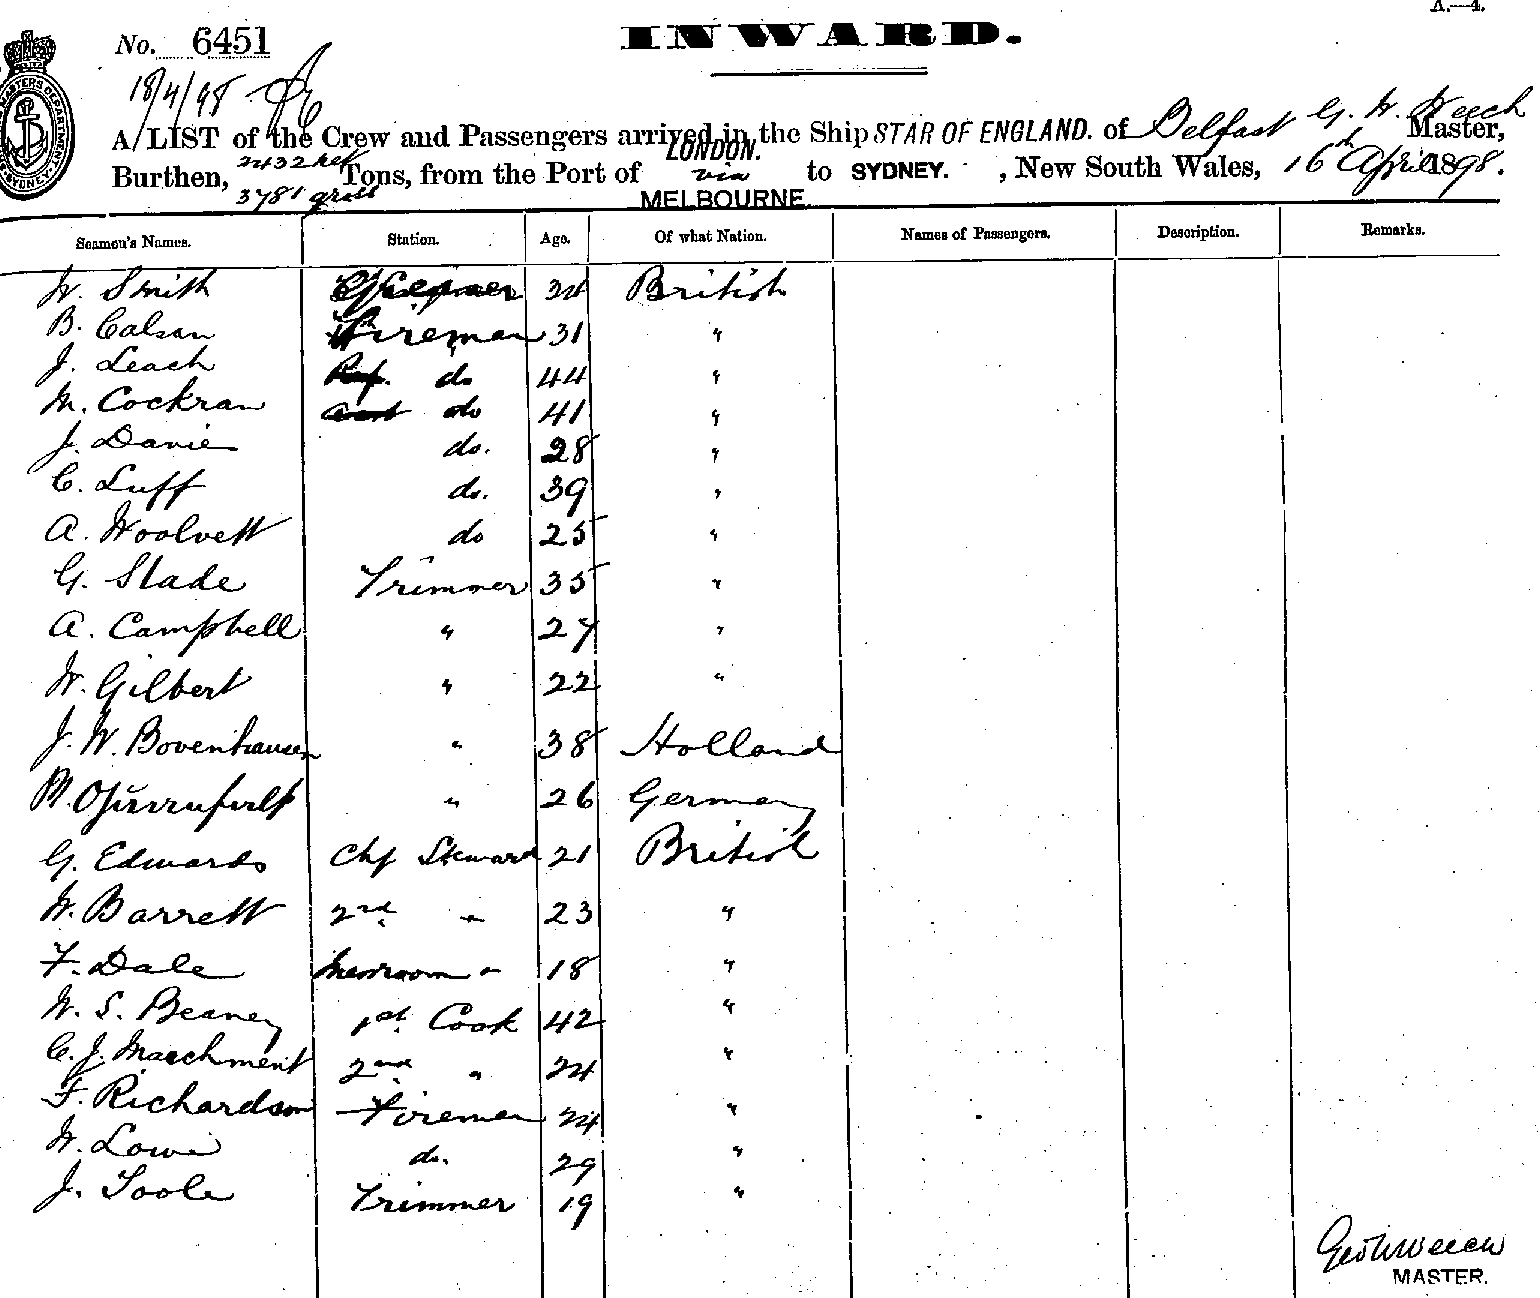 A.—4.
No. 6451
INWARD.
18/4/98
A LIST of the Crew and Passengers arrived in the Ship STAR OF ENGLAND. of Belfast G. W. Weech Master,
Burthen, 2432 net 3781 gross Tons, from the Port of LONDON. via MELBOURNE to SYDNEY. , New South Wales, 16th April 1898.
Seamen's Names. Station. Age. Of what Nation. Names of Passengers. Description. Remarks.
W. Smith 34 British
B. Calsan Fireman 31 "
J. Leach do 44 "
M. Cockran do 41 "
J. Davie do. 28 "
C. Luff do. 39 "
A. Woolvett do 25 "
G. Slade Trimmer 35 "
A. Campbell " 27 "
W. Gilbert " 22 "
J. W. Bovenhausen " 38 Holland
" 26 Germany
G. Edwards Chf Steward 21 British
W. Barrett 2nd " 23 "
F. Dale Messroom " 18 "
W. S. Beaney 1st Cook 42 "
C. J. Marchment 2nd " 24 "
F. Richardson Fireman 24 "
W. Lowe do. 29 "
J. Toole Trimmer 19 "
Geo W Weech
MASTER.